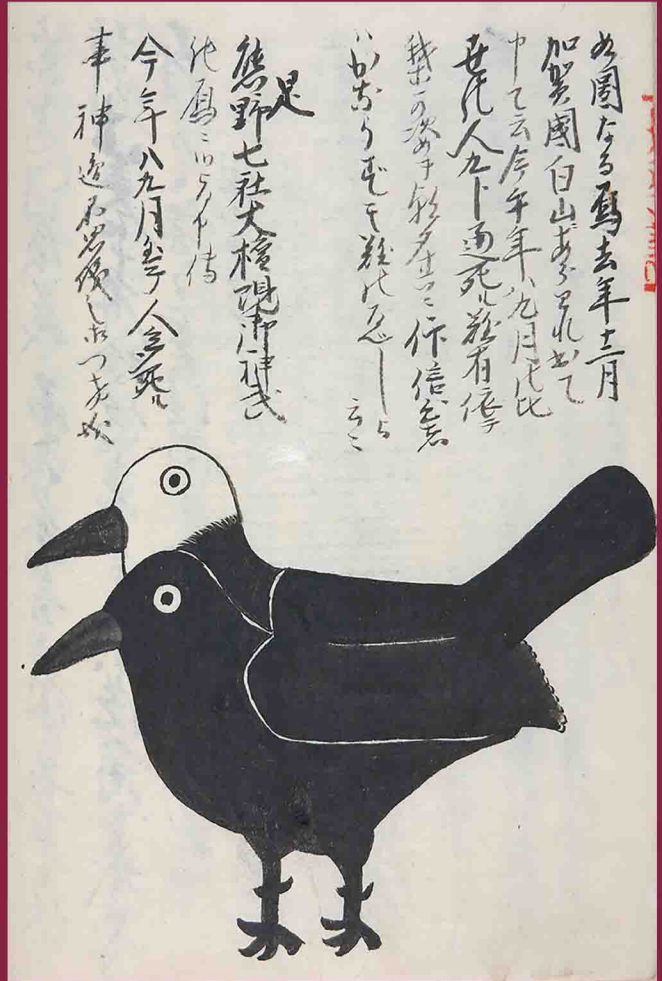 如圖なる烏去年十二月
加賀國白山にあらわれ出て
申て云今午年八九月の比
世の人九分通死ル難有依テ
我等の姿ヲ朝夕共ニ仰信者
ハかならず其難のがるべしと云々
是
熊野七社大権現御神武
の烏ニ候旨申伝
今年八九月至テ多人死ル
事神辺不思議之御つけ成哉